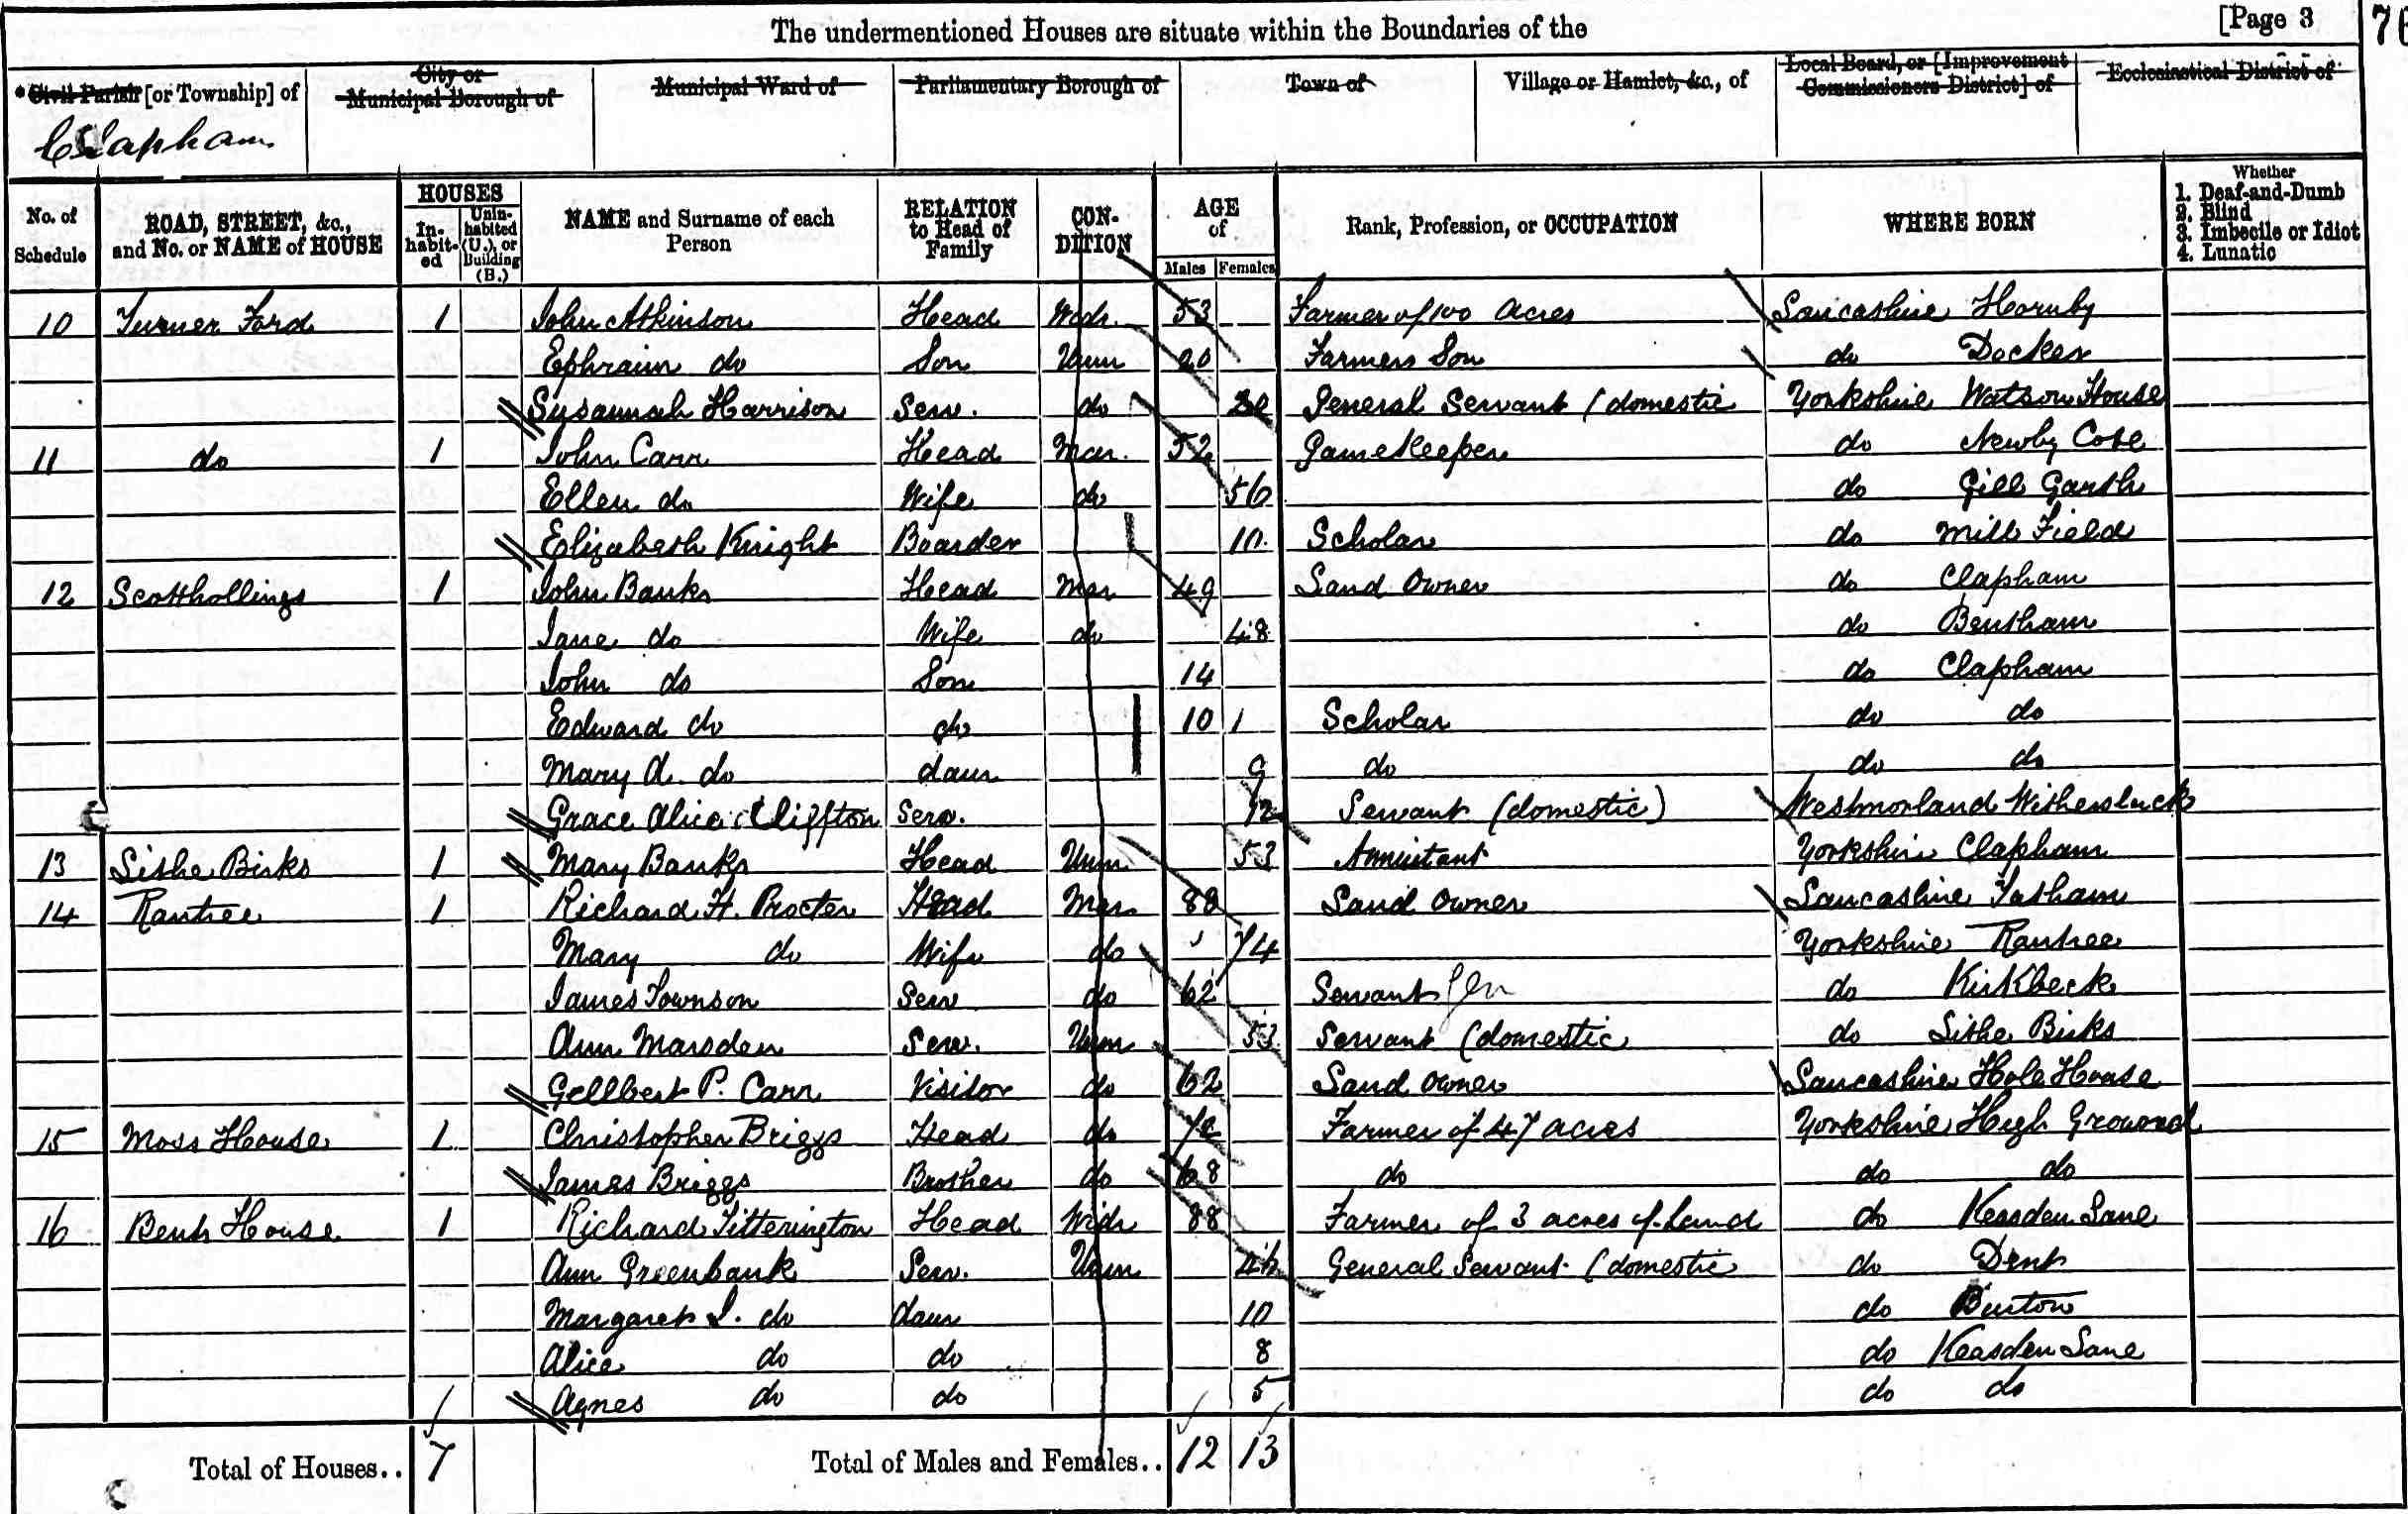 The undermentioned Houses are situate within the Boundaries of the [Page 3 76
Civil Parish [or Township] of City or Municipal Borough of Municipal Ward of Parliamentary Borough of Town of Village or Hamlet, &c., of Local Board, or [Improvement Commissioners District] of Ecclesiastical District of
Clapham
No. of Schedule ROAD, STREET, &c., and No. or NAME of HOUSE HOUSES Inhabited Uninhabited (U.), or Building (B.) NAME and Surname of each Person RELATION to Head of Family CONDITION AGE of Males Females Rank, Profession, or OCCUPATION WHERE BORN Whether 1. Deaf-and-Dumb 2. Blind 3. Imbecile or Idiot 4. Lunatic
10 Turner Ford 1 John Atkinson Head Widr. 53 Farmer of 100 acres Lancashire Hornby
Ephraim do Son Unm 20 Farmers Son do Docker
Susannah Harrison Serv. do General Servant (domestic Yorkshire Watson House
11 do 1 John Carr Head Mar. 52 Gamekeeper do Newby Cote
Ellen do Wife do 56 do Gill Garth
Elizabeth Knight Boarder 10 Scholar do Mill Field
12 Scotthollings 1 John Banks Head Mar 49 Land Owner do Clapham
Jane do Wife do 48 do Bentham
John do Son 14 do Clapham
Edward do do 10 1 Scholar do do
Mary A. do daur 9 do do do
Grace Alice Cliffton Serv. 12 Servant (domestic) Westmorland Witherslack
13 Lithe Birks 1 Mary Banks Head Unm 53 Annuitant Yorkshire Clapham
14 Rantree 1 Richard H. Procter Head Mar Land Owner Lancashire Tatham
Mary do Wife do 74 Yorkshire Rantree
James Townson Serv do 62 Servant Gen do Kirkbeck
Ann Marsden Serv. Unm 53 Servant (domestic do Lithe Birks
Gellbert P. Carr Visitor do 62 Land Owner Lancashire Hole House
15 Moss House 1 Christopher Briggs Head do Farmer of 47 acres Yorkshire High Grouond
James Briggs Brother do 68 do do do
16 Bents House 1 Richard Titterington Head Widr 88 Farmer of 3 acres of Land do Keasden Lane
Ann Greenbank Serv. Unm General Servant (domestic do Dent
Margaret I. do daur 10 do Burton
Alice do do 8 do Keasden Lane
Agnes do do 5 do do
Total of Houses.. 7 Total of Males and Females.. 12 13